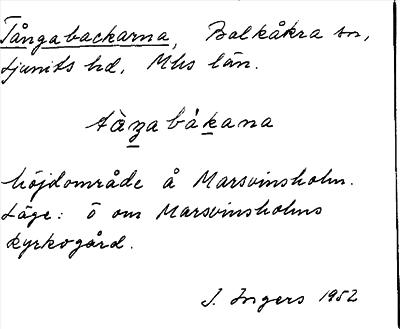 Tångabackarna, Balkåkra sn,
Ljunits hd, Mhs län.
tàꞑabákana
höjdområde å Marsvinsholm.
Läge: ö om Marsvinsholms
kyrkogård.
J. Ingers 1952